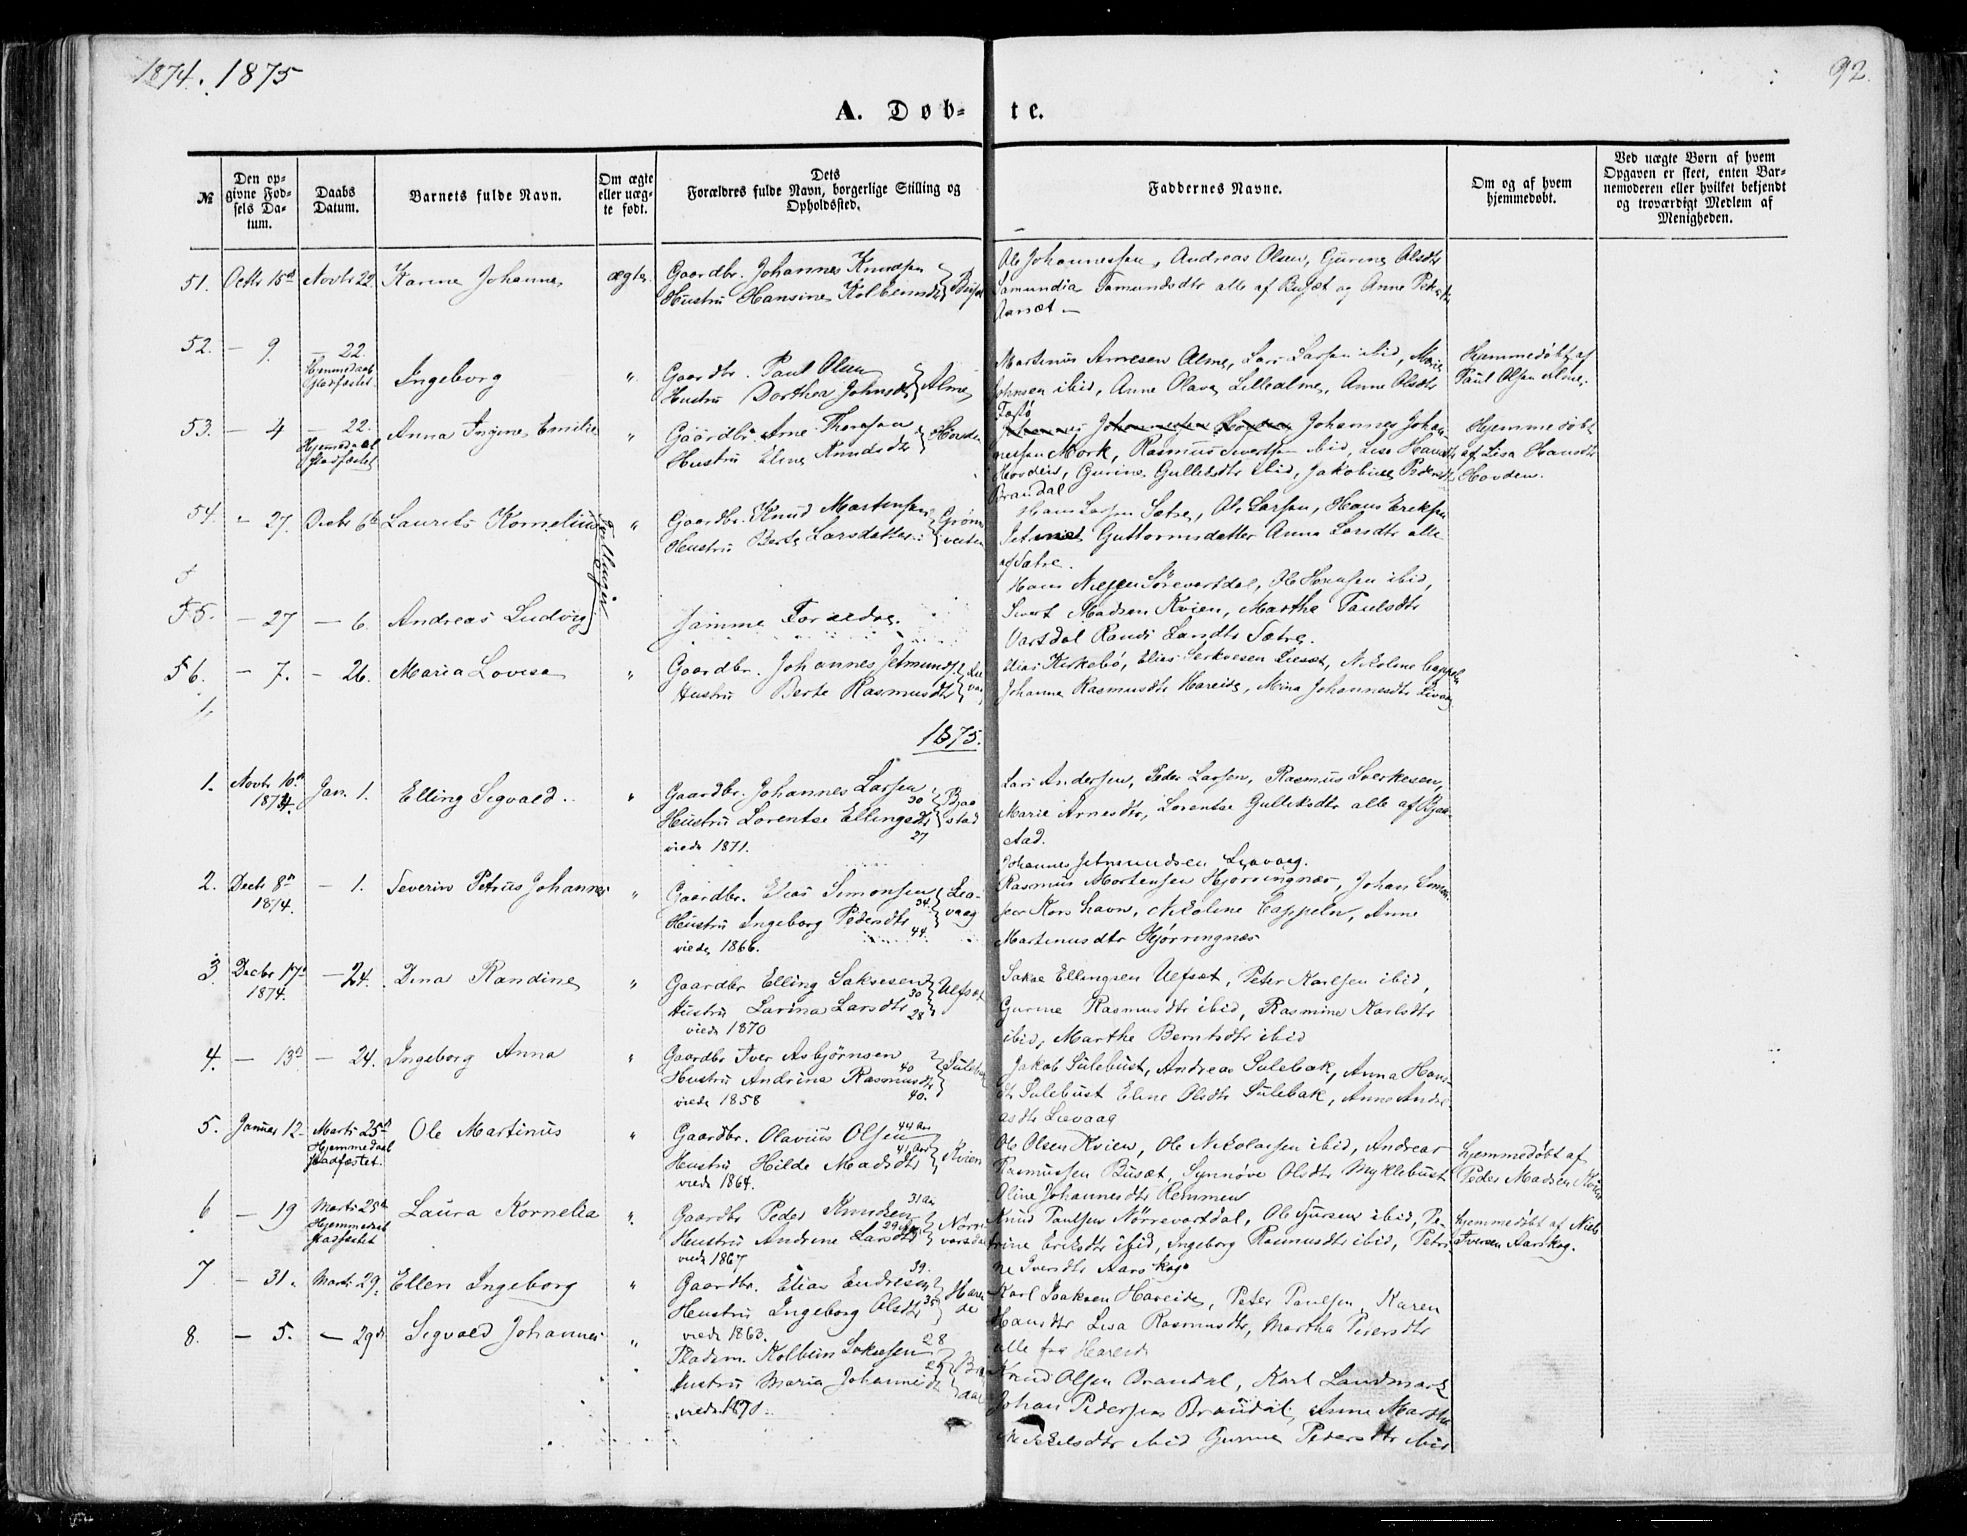 1874. 1875
92.
A. Døb- te.
№
Den op-
givne Fød-
sels Da-
tum.
Daabs
Datum.
Barnets fulde Navn.
Om ægte
eller uæg-
te født.
Dets
Forældres fulde Navn, borgerlige Stilling og
Opholdssted.
Faddernes Navne.
Om og af hvem
hjemmedøbt.
Ved uægte Børn af hvem
Opgaven er skeet, enten Bar-
nemoderen eller hvilket bekjendt
og troværdigt Medlem af
Menigheden.
51. Octbr 15de Novbr 22 Karine Johanne ægte
Gaardbr. Johannes Knudsen
Hustru Hansine Kolbensdtr
Ole Johannessen, Andreas Olsen, Gurine Olsdtr
alle af Busæt og Anne
52. — 9. — 22.
Hjemmedaab
stadfæstet
Ingeborg "
Gaardbr. Paul Olsen
Hustru Dorthea Johnsdtr Alme
Martinus Arnesen Alme, Lars Larsen ibid,
Johnsen ibid, Anne Olava Lillealme, Anne Olsdtr
Hjemmedøbt af
Paul Olsen Alme.
53. — 4 — 22.
Hjemmedaab
stadfæstet
Anna Emilie "
Gaardbr. Arne
Hustru Eline Knudsdtr Hovden
Johannes Johan-
nessen Mork, Rasmus Sivertsen ibid, Lise Hansdtr
Hovden, Gurine ibid, Jakobine Pedersdtr
Brandal
Hjemmedøbt
af Lisa Hansdtr
Hovden.
54. — 27. Decbr 6te Laurits Kornelius "
Tvillinger
Gaardbr. Knud Martensen
Hustru Berte Larsdatter
Hans Larsen Sætre, Ole Larsen, Hans Eriksen
Guttormsdatter Anna Larsdtr alle
af Sætre.
55. — 27 — 6. Andreas Ludvig
Samme Forældre.
Hans Nilssen Sørevartdal, Ole Hansen ibid,
Sivert Madsen Kvien, Martha Paulsdtr
Vartdal Randi Sætre.
56. — 7. — 26. Maria Lovise "
Gaardbr. Johannes Jetmunds.
Hustru Berte Rasmusdtr
Elias Kirkebø, Elias Liesæt, Nikoline Cappeln
Johanne Rasmusdtr Hareide, Mina Johannesdtr
1875.
1. Novbr 10de
1874. Jan. 1. Elling Sigvald. "
Gaardbr. Johannes Larsen
30
Hustru Lorentse Ellingsdtr
27
viede 1871.
Bjaa-
stad
Lars Andersen, Peder Larsen, Rasmus Sverkesen,
Marie Arnesdtr, Lorentse Gulliksdtr alle af Bjaa-
stad.
2. Decbr 8de
1874. — 1. Severin Petrus Johannes "
Gaardbr. Elias Simonsen
34.
Hustru Ingeborg Pedersdtr
44.
viede 1866.
Lia-
vaag
Johannes Jetmundsen Liavaag.
Rasmus Mortensen Hjørringnæs, Johan
Kors havn, Nikoline Cappeln, Anne
Martinusdtr Hjørringnæs
3. Decbr 17de
1874. — 24. Dina Randine "
Gaardbr Elling Saksesen
30
Hustru Larina Larsdtr
28
viede 1870
Ulfsæt
Sakse Ellingsen Ulfsæt, Peter Karlsen ibid,
Gurine Rasmusdtr ibid, Rasmine Karlsdtr
ibid, Marthe Berntsdtr ibid
4. — 13de — 24. Ingeborg Anna "
Gaardbr Iver Asbjørnsen
40
Hustru Andrina Rasmusdtr
40.
viede 1858
Sulebak
Jakob Sulebust, Andreas Sulebak, Anna Hans-
dtr Sulebust Eline Olsdtr Sulebak, Anne Andre-
asdtr Lievaag
5. Januar 12. Marts 25de
Hjemmedaab
stadfæstet.
Ole Martinus "
Gaardbr. Olavius Olsen
44 Aar
Hustru Hilde Madsdtr
41 Aar
viede 1864.
Kvien
Ole Olsen Kvien, Ole Nikolaisen ibid, Andreas
Rasmussen Busæt, Synnøve Olsdtr Myklebust
Oline Johannesdtr Remmen
Hjemmedøbt af
Peder Madsen Kvien
6 — 19 Marts 25de
Hjemmedaab
stadfæstet
Laura Kornelia "
Gaardbr Peder Knudsen
31 Aar
Hustru Andrine Larsdtr
29
viede 1867
Nørre
Knud Paulsen Nørrevartdal, Ole ibid, Pe-
trine Eriksdtr ibid, Ingeborg Rasmusdtr ibid, Petri-
ne Iversdtr Aarskog
Hjemmedøbt af Niels
Iversen Aarskog.
7 — 31. Marts 29. Ellen Ingeborg "
Gaardbr. Elias Endresen
39.
Hustru Ingeborg Olsdtr
35
viede 1863.
Harei-
de
Karl Isaksen Hareide, Peter Paulsen, Karen
Hansdtr Lisa Rasmusdtr, Martha Pedersdtr
alle fra Hareid
8. — 5. — 29de Sigvald Johannes "
Pladsm. Kolbein Saksesen
28
Hustru Maria Johannesdtr
viede 1870.
Knud Olsen Brandal, Karl Landmark
Johan Pedersen Brandal, Anne Martha
ibid Gurine Pedersdtr ibid